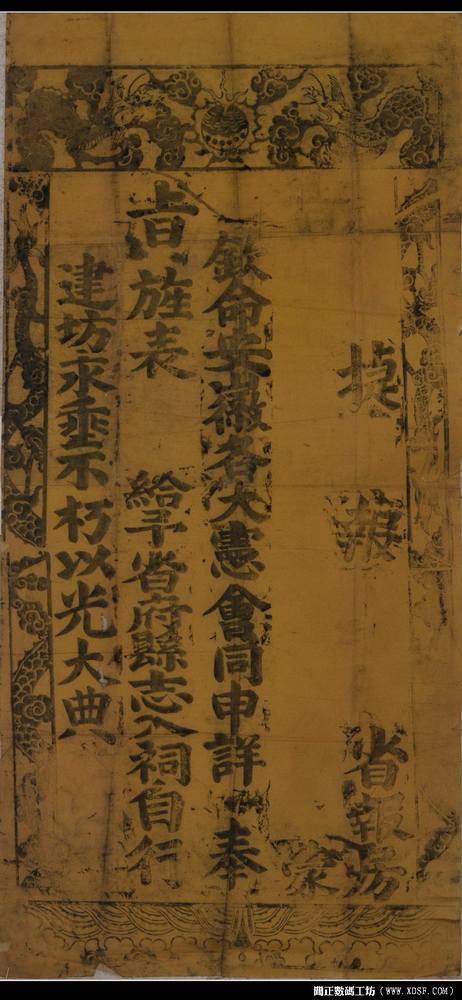 捷報 省報房
蒙
欽命安徽各大憲會同申詳 奉
旨旌表 給予省府縣志入祠自行
建坊永垂不朽以光大典
數碼工坊(WWW.XDSF.COM)